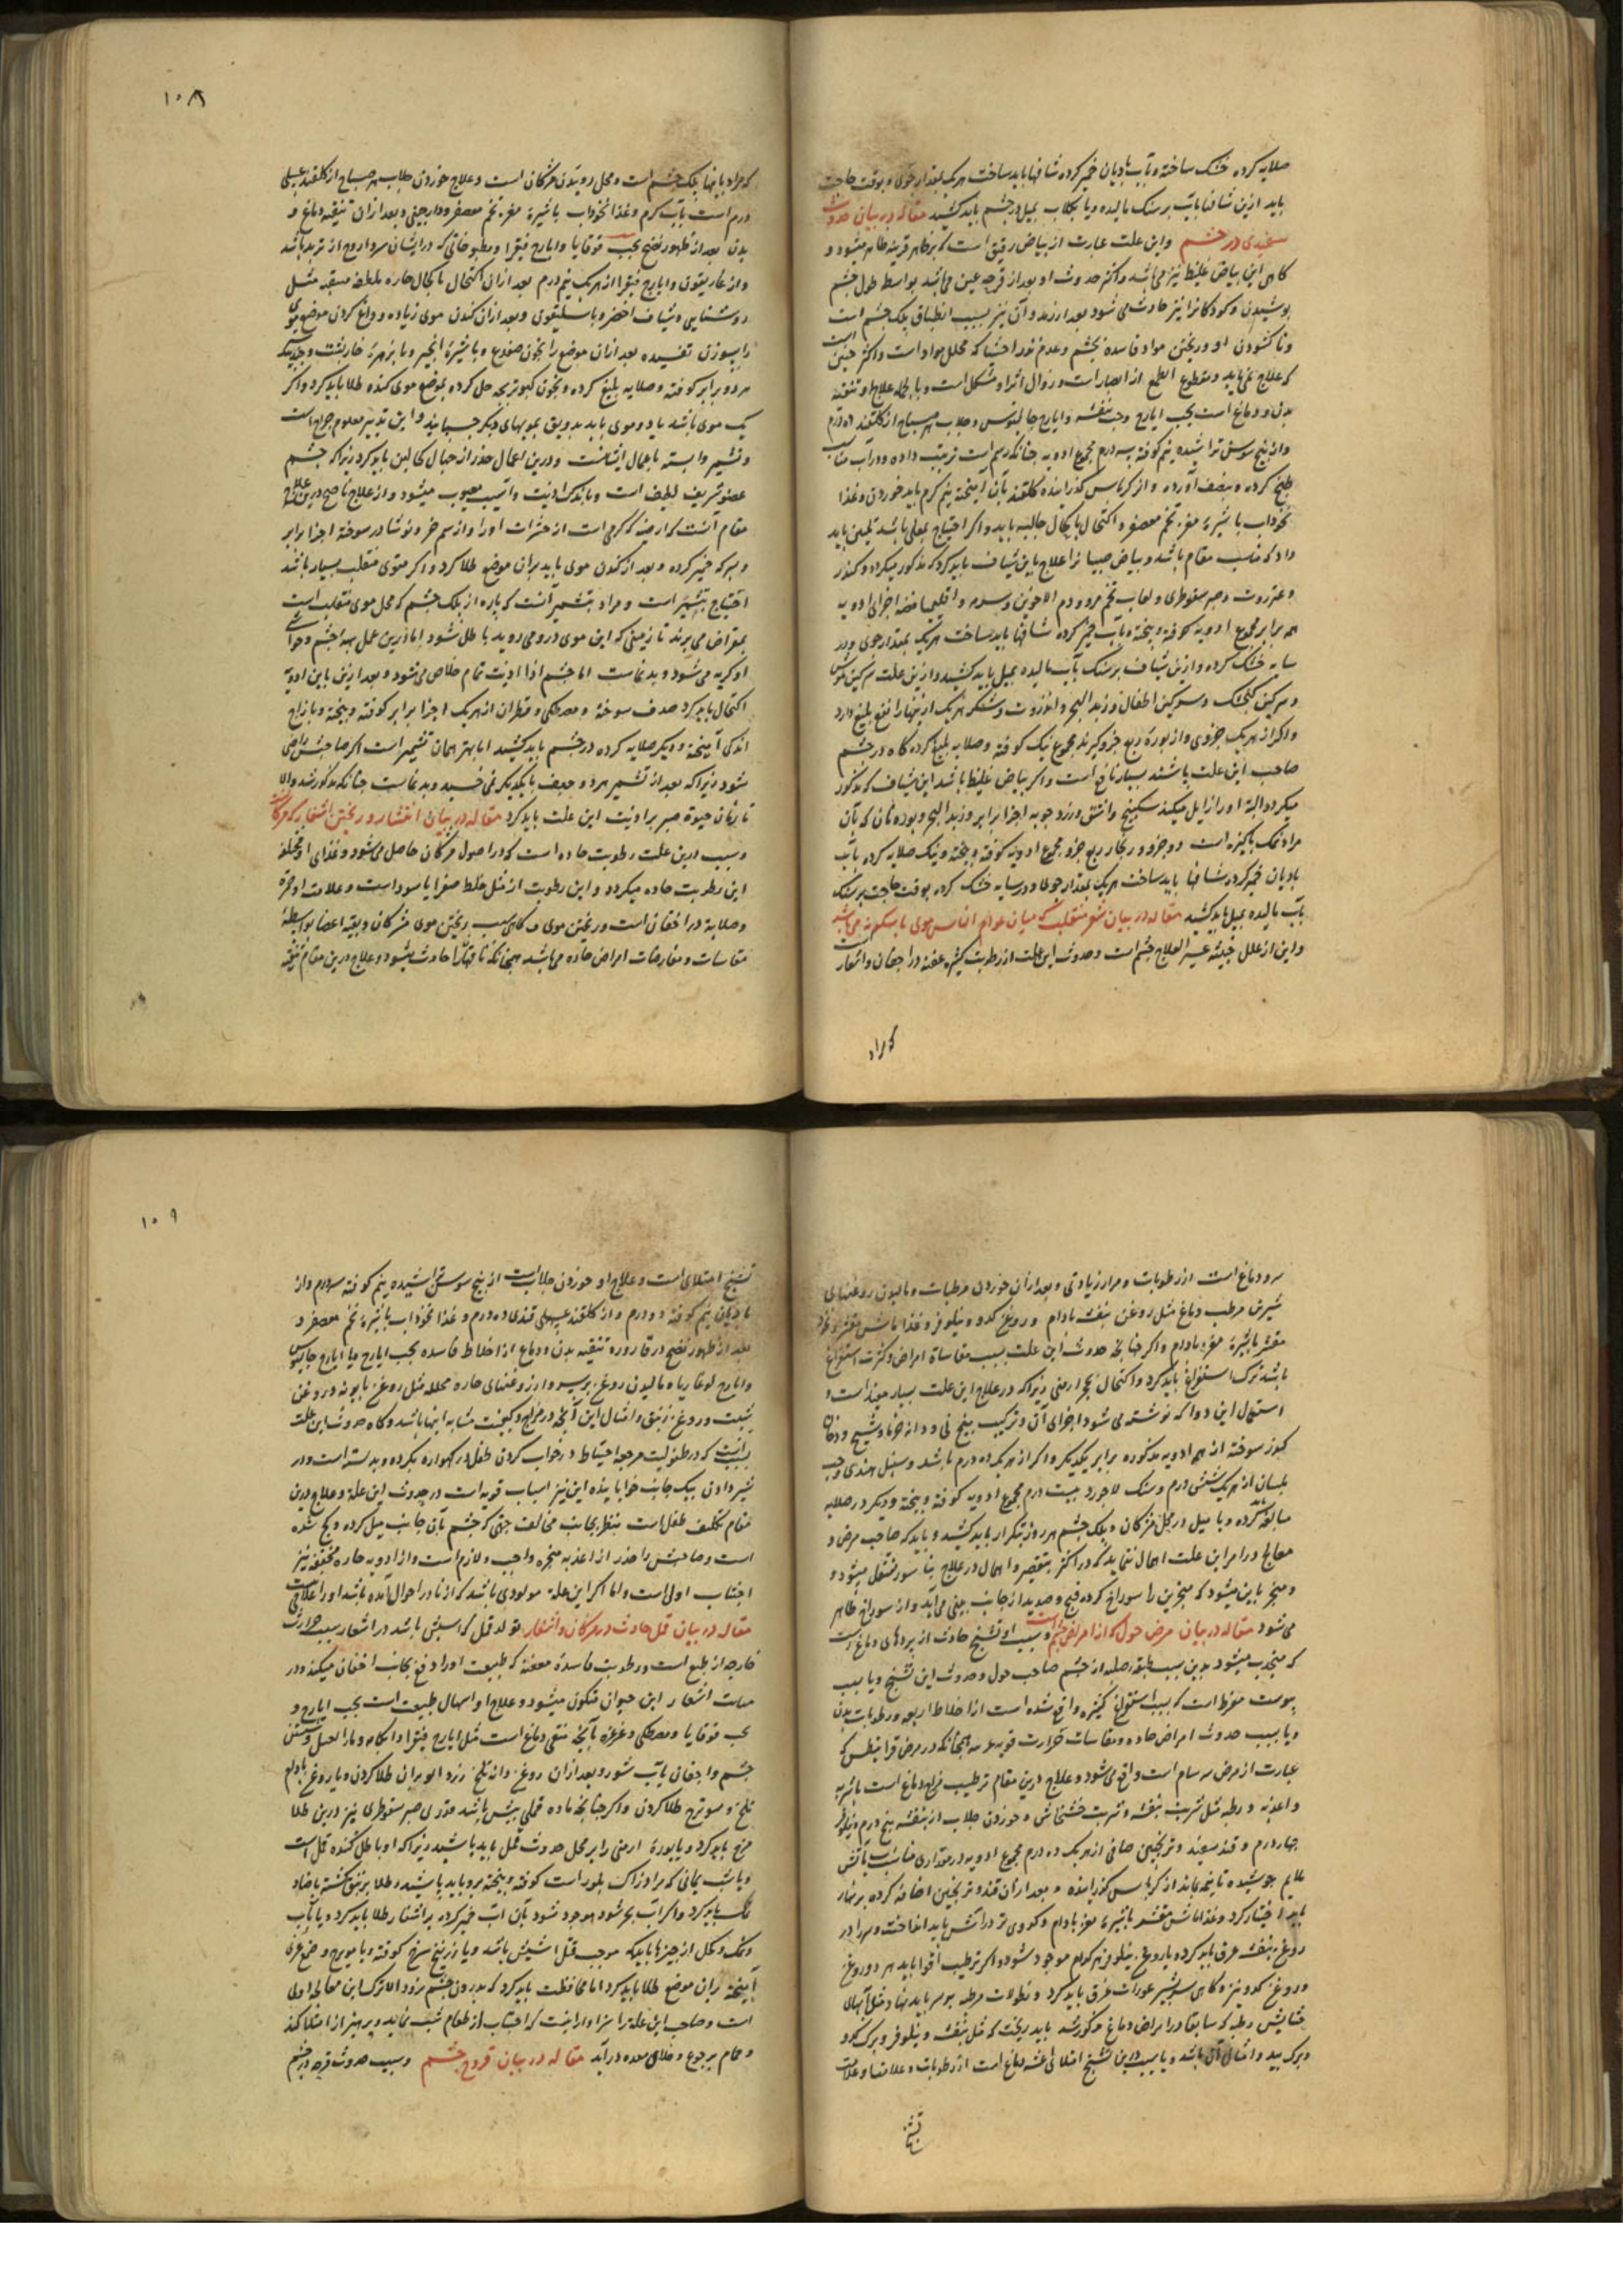 صلایه کرده خشک ساخته و بآب بادیان خمیر کرده شافها باید ساخت هر یک بمقدار جوی و بوقت حاجت
باید ازین شافها بآب بر سنک مالیده و یا بکلاب بمیل در چشم باید کشید مقاله در بیان حدوث
سفیدی در چشم واین علت عبارت از بیاض رقیق است که بر ظاهر قرنیه ظاهر میشود و
کاهی این بیاض غلیظ نیز می باشد و اکثر حدوث او بعد از قرحه عین می باشد بواسطه طول چشم
پوشیدن و کودکانرا نیز حادث می شود بعد از رمد و آن نیز بسبب انطباق پلک چشم است
و ناکشودن او و ریختن مواد فاسده بچشم و عدم نور
که علاج نمی یابد و مقطوع الطمع از ابصار است و زوال اثر او مشکل است و بالجمله علاج او تنقیه
بدن و دماغ است بحب ایارج و حب بنفشه و ایارج جالینوس و جلاب هر صباح از کلقند ده درم
و از بیخ سوسن تراشیده نیم کوفته سه درم مجموع ادویه چنانکه رسم است ترتیب داده و در آب مناسب
طبخ کرده و بنصف آورده و از کرباس کذرانیده کلقند بآن آمیخته نیم کرم باید خوردن و غذا
نخوداب با شیرهٔ مغز تخم معصفر و اکتحال باکحال جالیه باید و اکر احتیاج بعملی باشد تلیین باید
داد که مناسب مقام باشد و بیاض صبیانرا علاج باین شیاف باید کرد که مذکور میکردد کندر
و عنزروت و صبر سقوطری و لعاب تخم مرو و دم الاخوین و سرمه و اقلیمیا فضه اجزای ادویه
همه برابر مجموع ادویه کوفته و بیخته و بآب خمیر کرده شافها باید ساخت هر یک بمقدار جوی و در
سایه خشک کرده و ازین شیاف بر سنک بآب مالیده بمیل باید کشید و ازین علت سرکین موش
و سرکین کنجشک و سرکین اطفال و زبد البحر و انزروت و شکر هر یک ازینها را نفع بلیغ دارد
و اکر از هر یک جزوی و از بوره ربع جزو کیرند مجموع نیک کوفته و صلایه بلیغ کرده کاه در چشم
صاحب این علت پاشند بسیار نافع است و اکر بیاض غلیظ باشد این شیاف که مذکور
میکردد البته او را زایل میکند سکبینج و اشق و زرد جوبه اجزا برابر و زبد البحر و بوره نان که بآن
مراد نمک پاکیزه است دو جزو و زنجار ربع جزو مجموع ادویه کوفته و بیخته و نیک صلایه کرده بآب
بادیان خمیر کرده شافها باید ساخت هر یک بمقدار جوی و در سایه خشک کرده بوقت حاجت بر سنک
بآب مالیده بمیل باید کشید مقاله در بیان شعر منقلب که میان عوام الناس موی باسکونه می باشد
و این از علل خبیثه عسیر العلاج چشم است و حدوث این علت از رطوبت کثیره عفنه در اجفان و اشفار است
که مراد
۱۰۸
که مراد بآنها پلک چشم است و محل روئیدن مژکان است و علاج خوردن جلاب هر صباح از کلقند عسلی
درم است بآب کرم و غذا نخوداب با شیرهٔ مغز تخم معصفر و دارچینی و بعد از ان تنقیه دماغ و
بدن بعد از ظهور نضج بحب قوقایا و ایارج فیقرا و مطبوخاتی که در ایشان سردارو از تربد باشد
و از غاریقون و ایارج فیقرا از هر یک نیم درم بعد از ان اکتحال باکحال حاره ملطفه منقیه مثل
روشنایی و شیاف اخضر و باسلیقون و بعد از ان کندن موی زیاده و داغ کردن موضع موی
را بسوزن تفسیده بعد از ان موضع را بخون ضفدع و با شیرهٔ انجیر و با زهرهٔ خارپشت و جندبیدستر
هر دو برابر کوفته و صلایه بلیغ کرده و بخون کبوتر بچه حل کرده بموضع موی کنده طلا باید کرد و اکر
یک موی باشد یا دو موی باید بدبق بمویهای دیکر چسبانید و این تدبیر معلوم جراح است
و تشمیر وابسته باعمال ایشانست و درین اعمال حذر از جهال کاملین باید کرد زیرا که چشم
عضو شریف لطیف است و باندک اذیت و آسیب معیوب میشود و از علاج ناصح درین علاج
مقام آنست که ارضه که کرمی است از حشرات او را و از سم خر و نوشادر سوخته اجزا برابر
و بسرکه خمیر کرده و بعد از کندن موی باید بران موضع طلا کرد و اکر موی منقلب بسیار باشد
احتیاج بتشمیر است و مراد بتشمیر آنست که پاره از پلک چشم که محل موی منقلب است
بمقراض می برند تا زمینی که این موی درو می روید باطل شود اما ازین عمل هیأت چشم و حوالی
او کریه می شود و بدنماست اما چشم ازاذیت تمام خلاص می شود و بعد ازین باین ادویه
اکتحال باید کرد صدف سوخته و مصطکی و قطران از هر یک اجزا برابر کوفته و بیخته و با زاج
اندکی آمیخته و دیکر صلایه کرده در چشم باید کشید اما بهتر همان تشمیر است اکر صاحبش راضی
شود زیرا که بعد از تشمیر هر دو جفن بایکدیکر نمی خسپد و بدنماست چنانکه مذکور شد والا
تا زمان حیوة صبر بر اذیت این علت باید کرد مقاله در بیان انتشار و ریختن اشفار که مژکانست
و سبب درین علت رطوبت حاده است که در اصول مژکان حاصل می شود و غذای او مختلط
این رطوبت حاده میکردد و این رطوبت از مثل خلط صفرا یا سوداست و علامت او حمرة
و صلابة در اجفان است و ریختن موی و کاهی سبب ریختن موی مژکان و بقیه اعضا بواسطهٔ
مقاسات و مقارنات امراض حاده می باشد همچنانکه ناقهانرا حادث میشود و علاج درین مقام تنقیه
سر و دماغ است از رطوبات و مرار زیادتی و بعد از ان خوردن مرطبات و مالیدن روغنهای
شیرین مرطب دماغ مثل روغن بنفشه بادام و روغن کدو و نیلوفر و غذا ماش مقشر و نخود
مقشر باشیرهٔ مغز بادام و اکر چنانچه حدوث این علت بسبب مقاساة امراض و کثرت استفراغ
باشد ترک استفراغ باید کرد و اکتحال بحجر ارمنی زیرا که در علاج این علت بسیار مفید است و
استعمال این دوا که نوشته می شود اجزای آن و ترکیب بیخ نی و دانه خرما و شیح و دخان
کندر سوخته از همه ادویه مذکوره برابر یکدیکر و اکر از هر یک ده درم باشد و سنبل هندی و حب
بلسان از هر یک شش درم و سنک لاجورد بیست درم مجموع ادویه کوفته و بیخته و دیکر در صلایه
مبالغه کرده و با میل در محل مژکان و پلک چشم هر روز بتکرار باید کشید و باید که صاحب مرض و
معالج در امر این علت اهمال ننماید که در اکثر بتقصیر و اهمال در علاج بناسور منتقل میشود و
و منجر باین میشود که منخرین را سوراخ کرده قیح و صدید از جانب بینی می آید و از سوراخ ظاهر
می شود مقاله در بیان مرض حول که از امراض چشم است و سبب او تشنج حادث از پردهای دماغ است
که منجذب میشود بدین سبب طبقه صلبه از چشم صاحب حول و حدوث این تشنج و یا بسبب
یبوست مفرط است که بسبب استفراغ کثیره واقع شده است از اخلاط اربعه و رطوبات بدن
و یا بسبب حدوث امراض حاده و مقاسات حرارت قویه همچنانکه در مرض قرانیطس که
عبارت از مرض سرسام است واقع می شود و علاج درین مقام ترطیب مزاج دماغ است باشربه
و اغذیه رطبه مثل شربت بنفشه و شربت خشخاش و خوردن جلاب از بنفشه پنج درم و نیلوفر
چهار درم و قند سفید و ترنجبین صافی از هر یک ده درم مجموع ادویه در مقداری مناسب بآتش
ملایم جوشیده تا نیمه بماند از کرباس کذرانیده و بعد از ان قند و ترنجبین اضافه کرده بر نهار
باید اختیار کرد و غذا ماش مقشر باشیرهٔ مغز بادام و کدوی تر در آتش باید انداخت و سر را در
روغن بنفشه غرق باید کرد و یا روغن نیلوفر هر کدام موجود شود و اکر ترطیب اقوا باید هر دو روغن
و روغن کدو نیز و کاهی بشیر عورات غرق باید کرد و نطولات مرطبه بر سر باید نهاد و مثل آبهای
حشایش رطبه که سابقا در امراض دماغ مذکور شد باید ریخت که مثل بنفشه و نیلوفر و برک کدو
و برک بید و امثال آن باشد و یا سبب درین تشنج امتلائی اغشیه دماغ است از رطوبات و علامتها و علامت
تشنج
۱۰۹
تشنج امتلائی است و علاج او خوردن جلاب است از بیخ سوسن تراشیده نیم کوفته سه درم و از
بادیان نیم کوفته دو درم و از کلقند عسلی قندی ده درم و غذا نخوداب باشیرهٔ تخم معصفر و
بعد از ظهور نضج در قاروره تنقیه بدن و دماغ از اخلاط فاسده بحب ایارج و یا ایارج جالینوس
و ایارج لوغاذیا و مالیدن روغن بر سر و از روغنهای حاره محلله مثل روغن بابونه و روغن
شبت و روغن زنبق و امثال این آنچه در مزاج و کیفیت مشابه اینها باشد و کاه حدوث این علت
بسبب آنست که در طفولیت مرضعه احتیاط در خواب کردن طفل در کهواره نکرده و بد بسته است و در
شیر دادن بیک جانب خوابانیده این نیز اسباب قویه است در حدوث این علة و علاج درین
مقام تکلیف طفل است بنظر بجانب مخالف جهتی که چشم بآن جانب میل کرده و کج شده
است و صاحبش را حذر از اغذیه مبخره واجب و لازم است و از ادویه حاره مجففه نیز
اجتناب اولی است و اما اکر این علة مولودی باشد که از مادر احول آمده باشد او را علاج نیست
مقاله در بیان قمل حادث در مژکان و اشفار تولد قمل که شپش باشد در اشفار بسبب حرارت
خارجه از طبع است و رطوبت فاسدهٔ معفنه که طبیعت او را دفع بجانب اجفان میکند و در
منابت اشفار این حیوان متکون میشود و علاج او اسهال طبیعت است بحب ایارج و
بحب قوقایا و مصطکی و غرغره بآنچه منقی دماغ است مثل ایارج فیقرا و آبکامه و ماء العسل و شستن
چشم و اجفان بآب شور و بعد از ان روغن دانه تلخ زردالو بران طلا کردن و یا روغن بادام
تلخ و میویزج طلا کردن و اکر چنانچه ماده قملی بیش باشد قدری صبر سقوطری نیز درین طلا
مزج باید کرد و یا بورهٔ ارمنی را بر محل حدوث قمل باید پاشید زیرا که او باطل کننده قمل است
و یا شب یمانی که مراد زاک بلور است کوفته و بیخته برو باید پاشید و طلا بزیبق کشته یا ضماد
نمک باید کرد و اکر آب بحر شود موجود شود بآن آب خمیر کرده بر اشفار طلا باید کرد و یا بآب
و نمک و کحل از چیزها باید که موجب قتل شپش باشد و یا زرنیخ سرخ کوفته و با مویزج و صمغ عربی
آمیخته بران موضع طلا باید کرد اما محافظت باید کرد که بدرون چشم نرود والا ترک این معالجه اولی
است و صاحب این علة را سزاوار اینست که اجتناب از طعام شب نماید و پرهیز از امتلا کند
و حمام بر جوع و خلای معده درآید مقاله در بیان قروح چشم و سبب حدوث قرحه در چشم